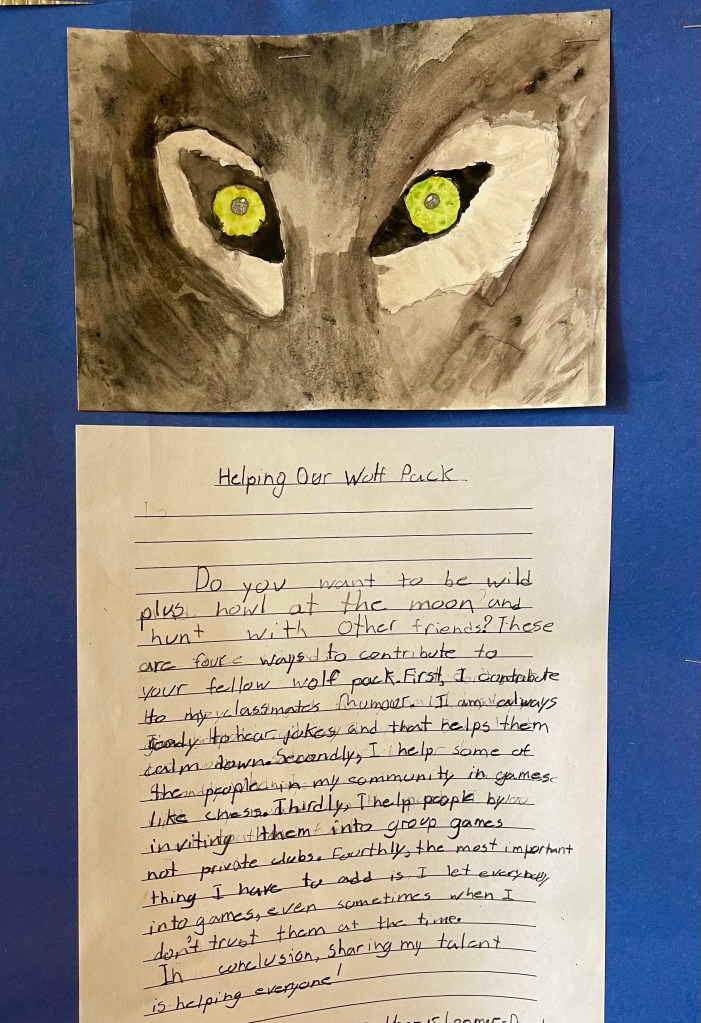 Helping Our Wolf Pack
Do you want to be wild
plus howl at the moon and
hunt with other friends? These
are four ways to contribute to
your fellow wolf pack. First, I contribute
to my classmates humour. I am always
ready to hear jokes, and that helps them
calm down. Secondly, I help some of
the people in my community in games
like chess. Thirdly, I help people by
inviting them into group games
not private clubs. Fourthly, the most important
thing I have to add is I let everybody
into games, even sometimes when I
don't trust them at the time.
In conclusion, sharing my talent
is helping everyone!